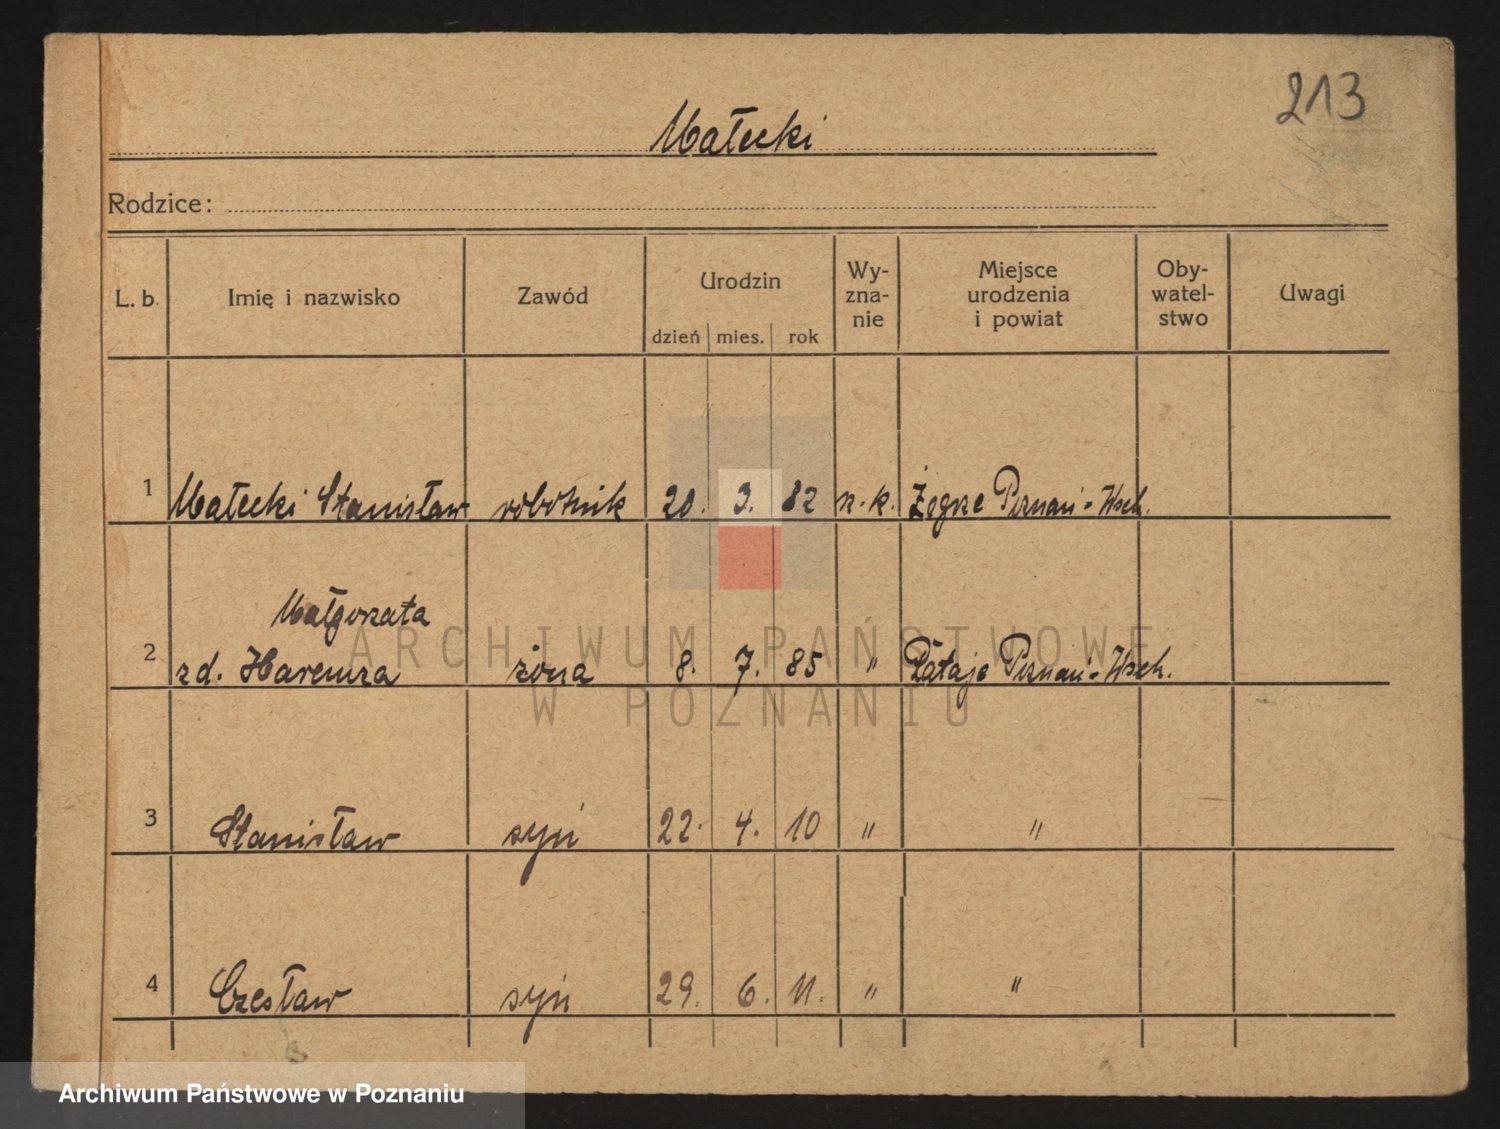 213
Małecki
Rodzice:
L. b. Imię i nazwisko Zawód Urodzin Wy- Miejsce Oby- Uwagi
zna- urodzenia watel-
nie i powiat stwo
dzień mies. rok
1 Małecki Stanisław robotnik 20. 3. 82 r. k. Żegrze Poznań-Wsch.
Małgorzata
2 zd. Haremza żona 8. 7. 85 " Rataje Poznań-Wsch.
3 Stanisław syn 22. 4. 10 " "
4 Czesław syn 29. 6. 11. " "
ARCHIWUM PAŃSTWOWE
W POZNANIU
Archiwum Państwowe w Poznaniu